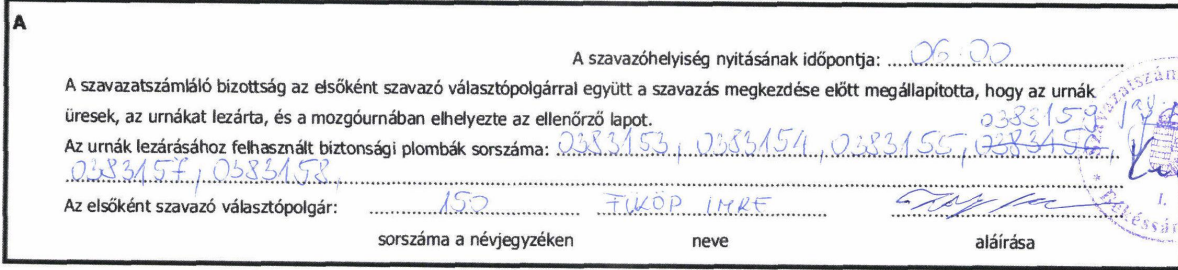 A
A szavazóhelyiség nyitásának időpontja: 06:00
A szavazatszámláló bizottság az elsőként szavazó választópolgárral együtt a szavazás megkezdése előtt megállapította, hogy az urnák
üresek, az urnákat lezárta, és a mozgóurnában elhelyezte az ellenőrző lapot. 0383159
Az urnák lezárásához felhasznált biztonsági plombák sorszáma: 0383153, 0383154, 0383155, 0383156,
0383157, 0383158,
Az elsőként szavazó választópolgár: 150 FÜKÖP IMRE
sorszáma a névjegyzéken neve aláírása
I.